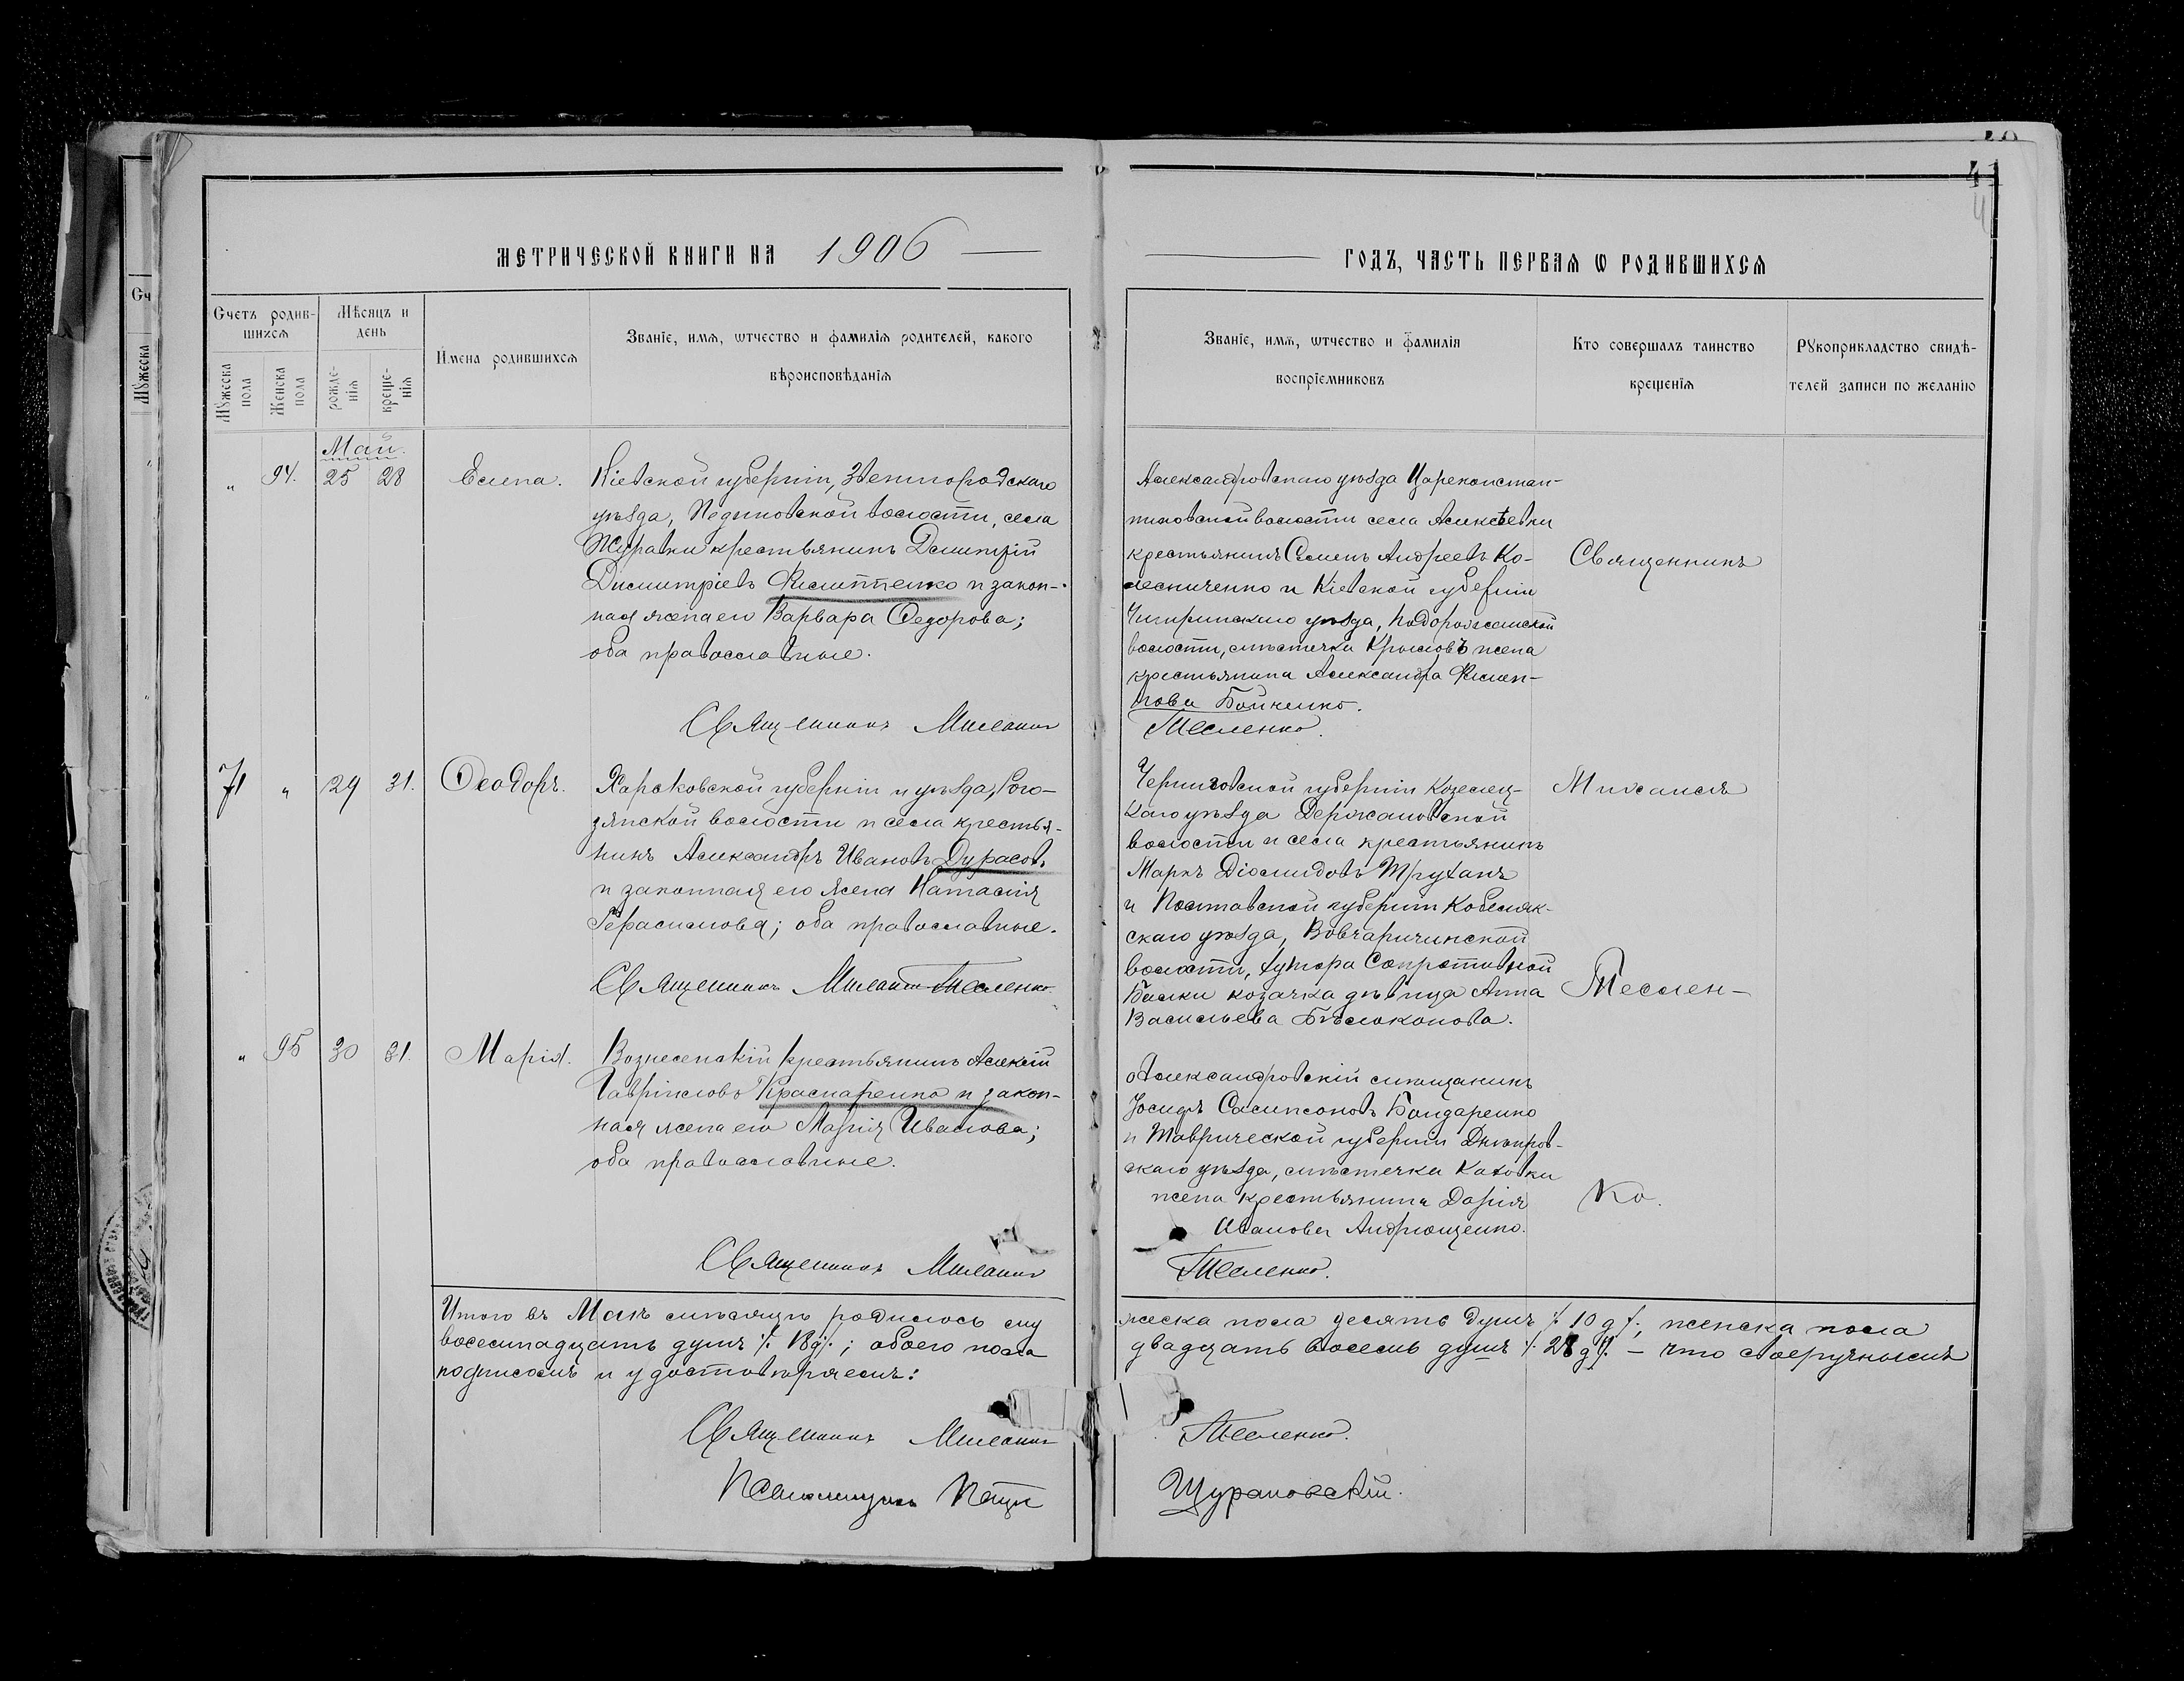 41
МЕТРИЧЕСКОЙ КНИГИ НА 1906
ГОДЪ, ЧАСТЬ ПЕРВАЯ Ѡ РОДИВШИХСЯ
Счетъ родив-
шихся
Мѣсяцъ и
день
Мужеска
пола
Женска
пола
рожде-
нія
креще-
нія
Имена родившихся
Званіе, имя, ѡтчество и фамилія родителей, какого
вѣроисповѣданія
Званіе, имя, ѡтчество и фамилія
воспріемниковъ
Кто совершалъ таинство
крещенія
Рукоприкладство свидѣ-
телей записи по желанію
Май.
" 94. 25 28 Елена.
Кіевской губерніи, Звенигородскаго
уѣзда, волости, села
Журавки крестьянинъ Димитрій
Димитріевъ Филиппенко и закон-
ная жена его Варвара Ѳедорова;
оба православные.
Священникъ Михаилъ
Александровскаго уѣзда Цареконстан-
тиновской волости села Алексѣевки
крестьянинъ Семенъ Андреевъ Ко-
лесниченко и Кіевской губерніи
Чигиринскаго уѣзда, Подорожнянской
волости, мѣстечка Крыловъ жена
крестьянина Александра Филип-
пова Бойченко.
Тесленко.
Священникъ
71 " 29 31. Ѳеодоръ.
Харьковской губерніи и уѣзда, Рого-
зянской волости и села крестья-
нинъ Александръ Ивановъ Дурасовъ
и законная его жена Наталія
Герасимова; оба православные.
Священникъ Михаилъ Тесленко.
Черниговской губерніи Козелец-
каго уѣзда Держановской
волости и села крестьянинъ
Маркъ Діомидовъ Труханъ
и Полтавской губерніи Кобеляк-
скаго уѣзда,
волости, хутора Сопротивной
Балки козачка дѣвица Анна
Васильева Бѣлоконова.
Михаилъ
Теслен-
" 95 30 31. Марія.
Вознесенскій крестьянинъ Алексій
Гавріиловъ Краснаренко и закон-
ная жена его Марія Иванова;
оба православные.
Священникъ Михаилъ
Александровскій мѣщанинъ
Іосифъ Сампсоновъ Бондаренко
и Таврической губерніи Днѣпров-
скаго уѣзда, мѣстечка Каховки
жена крестьянина Дарія
Иванова Андрющенко.
Тесленко.
ко.
Итого въ Маѣ мѣсяцѣ родилось му
жеска пола десять душъ % 10 д %; женска пола
восемнадцать душъ % 18 д %; обоего пола
двадцать восемь душъ % 28 д % – что своеручнымъ
подписомъ и удостовѣряемъ:
Священникъ Михаилъ Тесленко.
Псаломщикъ Щурановскій.